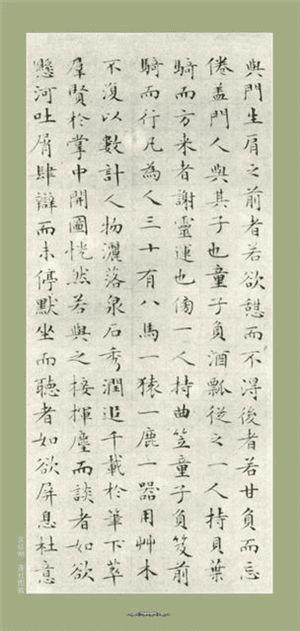 與門生肩之前者若欲憇而不淂後者若甘負而忘
倦盖門人與其子也童子負酒瓢從之一人持貝葉
騎而方来者謝靈運也傍一人持曲笠童子負笈前
騎而行凡為人三十有八馬一猿一鹿一器用艸木
不復以數計人物灑落泉石秀潤追千載於筆下萃
羣賢於掌中開圖恍然若與之接揮麈而談者如欲
懸河吐屑肆辯而未停默坐而聽者如欲屏息杜意
文徵明 蓮社图記